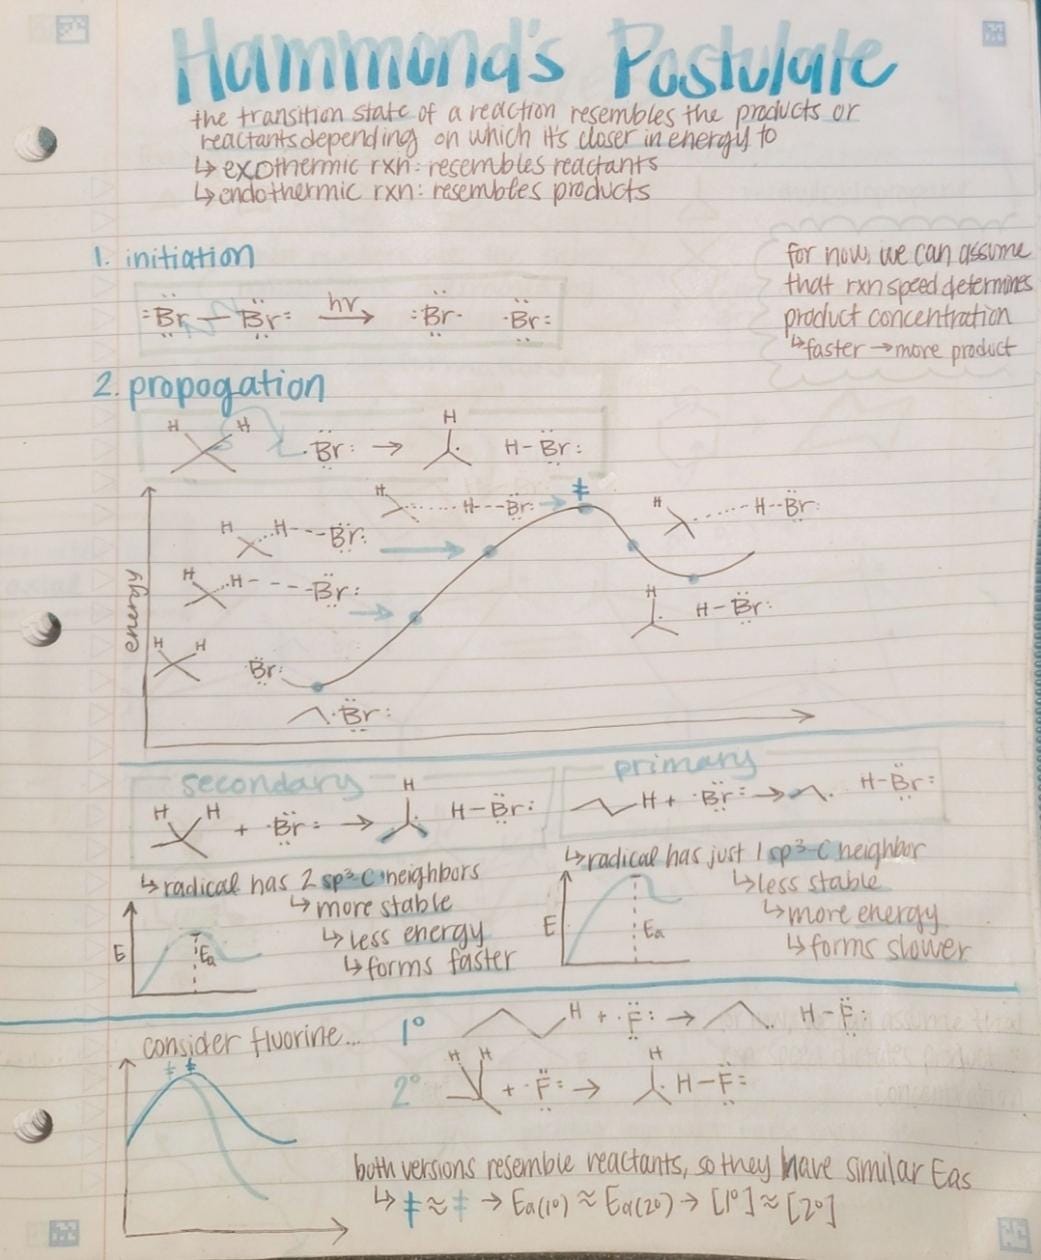 Hammond's Postulate
the transition state of a reaction resembles the products or
reactants depending on which it's closer in energy to
↳ exothermic rxn: resembles reactants
↳ endothermic rxn: resembles products
1. initiation
:Br — Br: hv → :Br· ·Br:
for now, we can assume
that rxn speed determines
product concentration
↳ faster → more product
2. propogation
H H ·Br: → H H-Br:
‡
H H---Br:
H H---Br:
H H--Br:
H H----Br:
energy
H H-Br:
H H Br:
·Br:
secondary
H H + ·Br: → H H-Br:
↳ radical has 2 sp³-C neighbors
↳ more stable
↳ less energy
↳ forms faster
E
Ea
primary
H + ·Br: → · H-Br:
↳ radical has just 1 sp³-C neighbor
↳ less stable
↳ more energy
↳ forms slower
E
Ea
consider fluorine...
‡ ‡
1° H + ·F: → · H-F:
2° H H + ·F: → H H-F:
both versions resemble reactants, so they have similar Eas
↳ ‡ ≈ ‡ → Ea(1°) ≈ Ea(2°) → [1°] ≈ [2°]